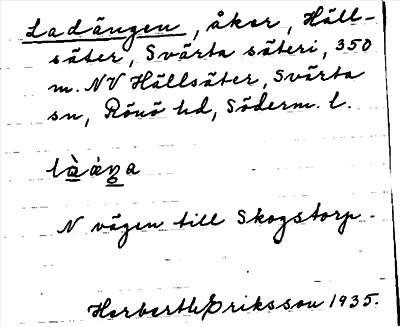 Ladängen, åker, Häll-
säter, Svärta säteri, 350
m. NV Hällsäter, Svärta
sn, Rönö hd, Söderm. l.
N vägen till Skogstorp.
Herbert Eriksson 1935.